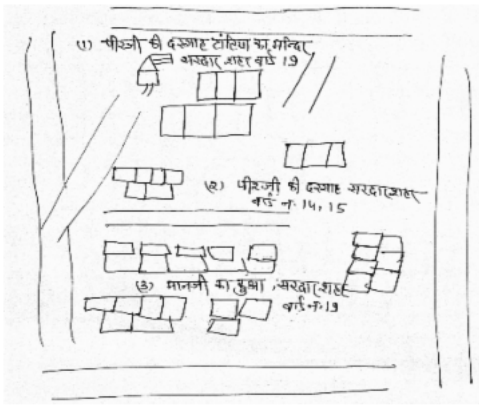 (1) पीरजी की दरगाह टांटिया का मन्दिर
सरदार शहर वार्ड 19
(2) पीरजी की दरगाह सरदारशहर
वार्ड नं. 14, 15
(3) मानजी का कुआ सरदारशहर
वार्ड नं. 19